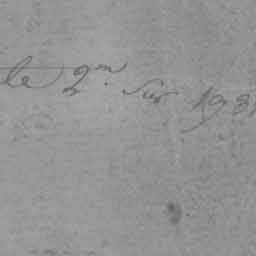 le 2.m Sur 193